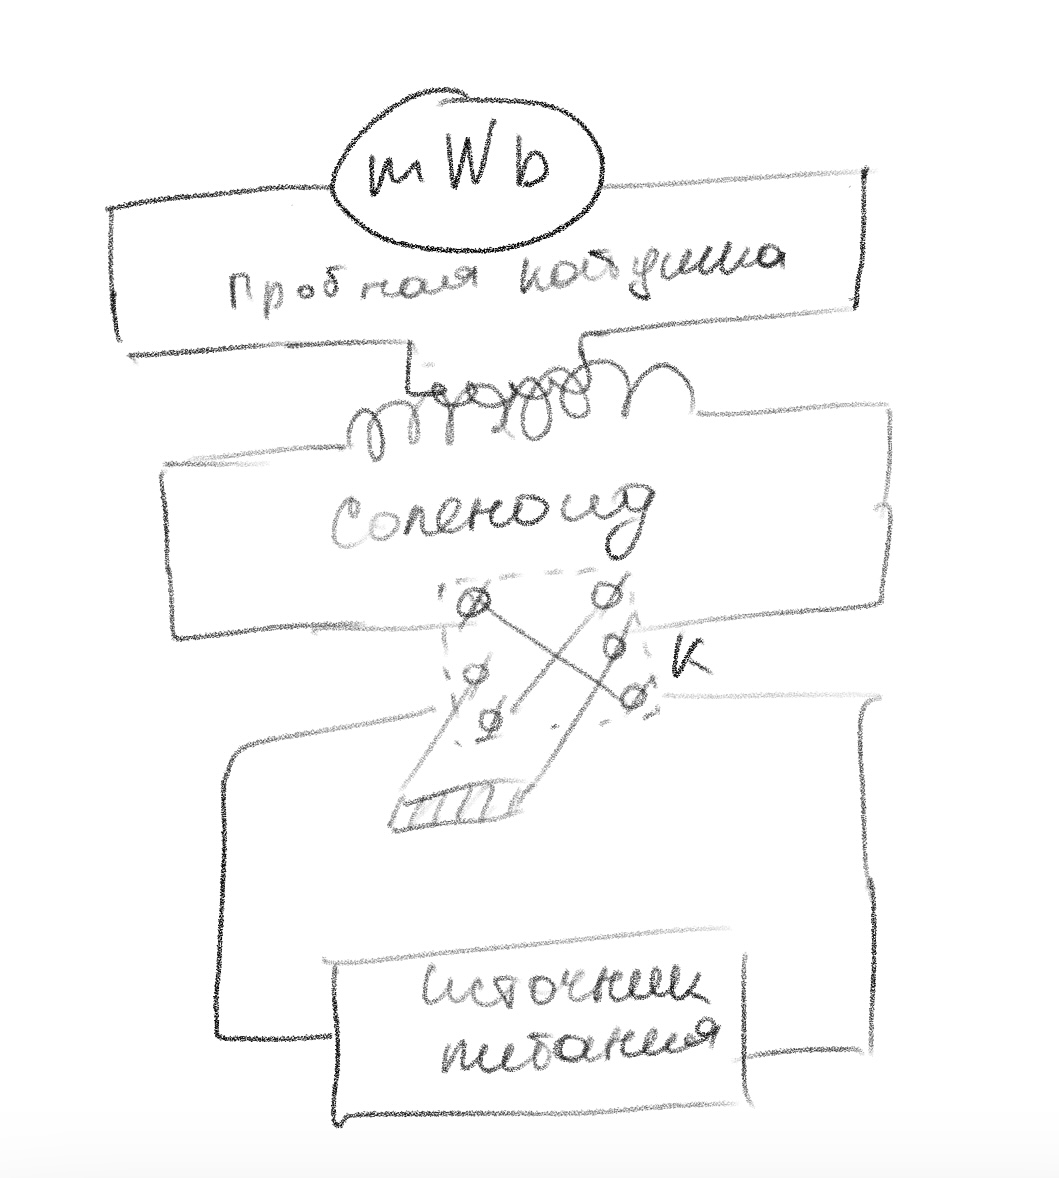 mWb
Пробная катушка
Соленоид
К
источник
питания